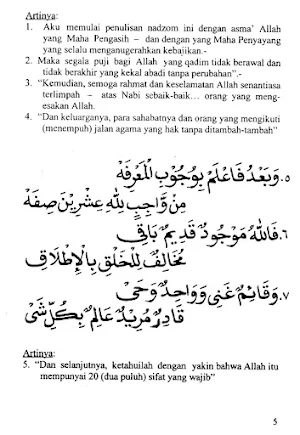 Artinya:
1. Aku memulai penulisan nadzom ini dengan asma' Allah
yang Maha Pengasih – dan dengan yang Maha Penyayang
yang selalu menganugerahkan kebajikan.-
2. Maka segala puji bagi Allah yang qadim tidak berawal dan
tidak berakhir yang kekal abadi tanpa perubahan".-
3. "Kemudian, semoga rahmat dan keselamatan Allah senantiasa
terlimpah – atas Nabi sebaik-baik... orang yang meng-
esakan Allah.
4. "Dan keluarganya, para sahabatnya dan orang yang mengikuti
(menempuh) jalan agama yang hak tanpa ditambah-tambah"
٥. وَبَعْدُ فَاعْلَمْ بِوُجُوْبِ الْمَعْرِفَهْ
مِنْ وَاجِبٍ لِلّٰهِ عِشْرِيْنَ صِفَهْ
٦. فَاللّٰهُ مَوْجُوْدٌ قَدِيْمٌ بَاقِى
مُخَالِفٌ لِلْخَلْقِ بِالْإِطْلَاقِ
٧. وَقَائِمٌ غَنِيْ وَوَاحِدٌ وَحَيّ
قَادِرْ مُرِيْدٌ عَالِمٌ بِكُلِّ شَيْ
Artinya:
5. "Dan selanjutnya, ketahuilah dengan yakin bahwa Allah itu
mempunyai 20 (dua puluh) sifat yang wajib"
5